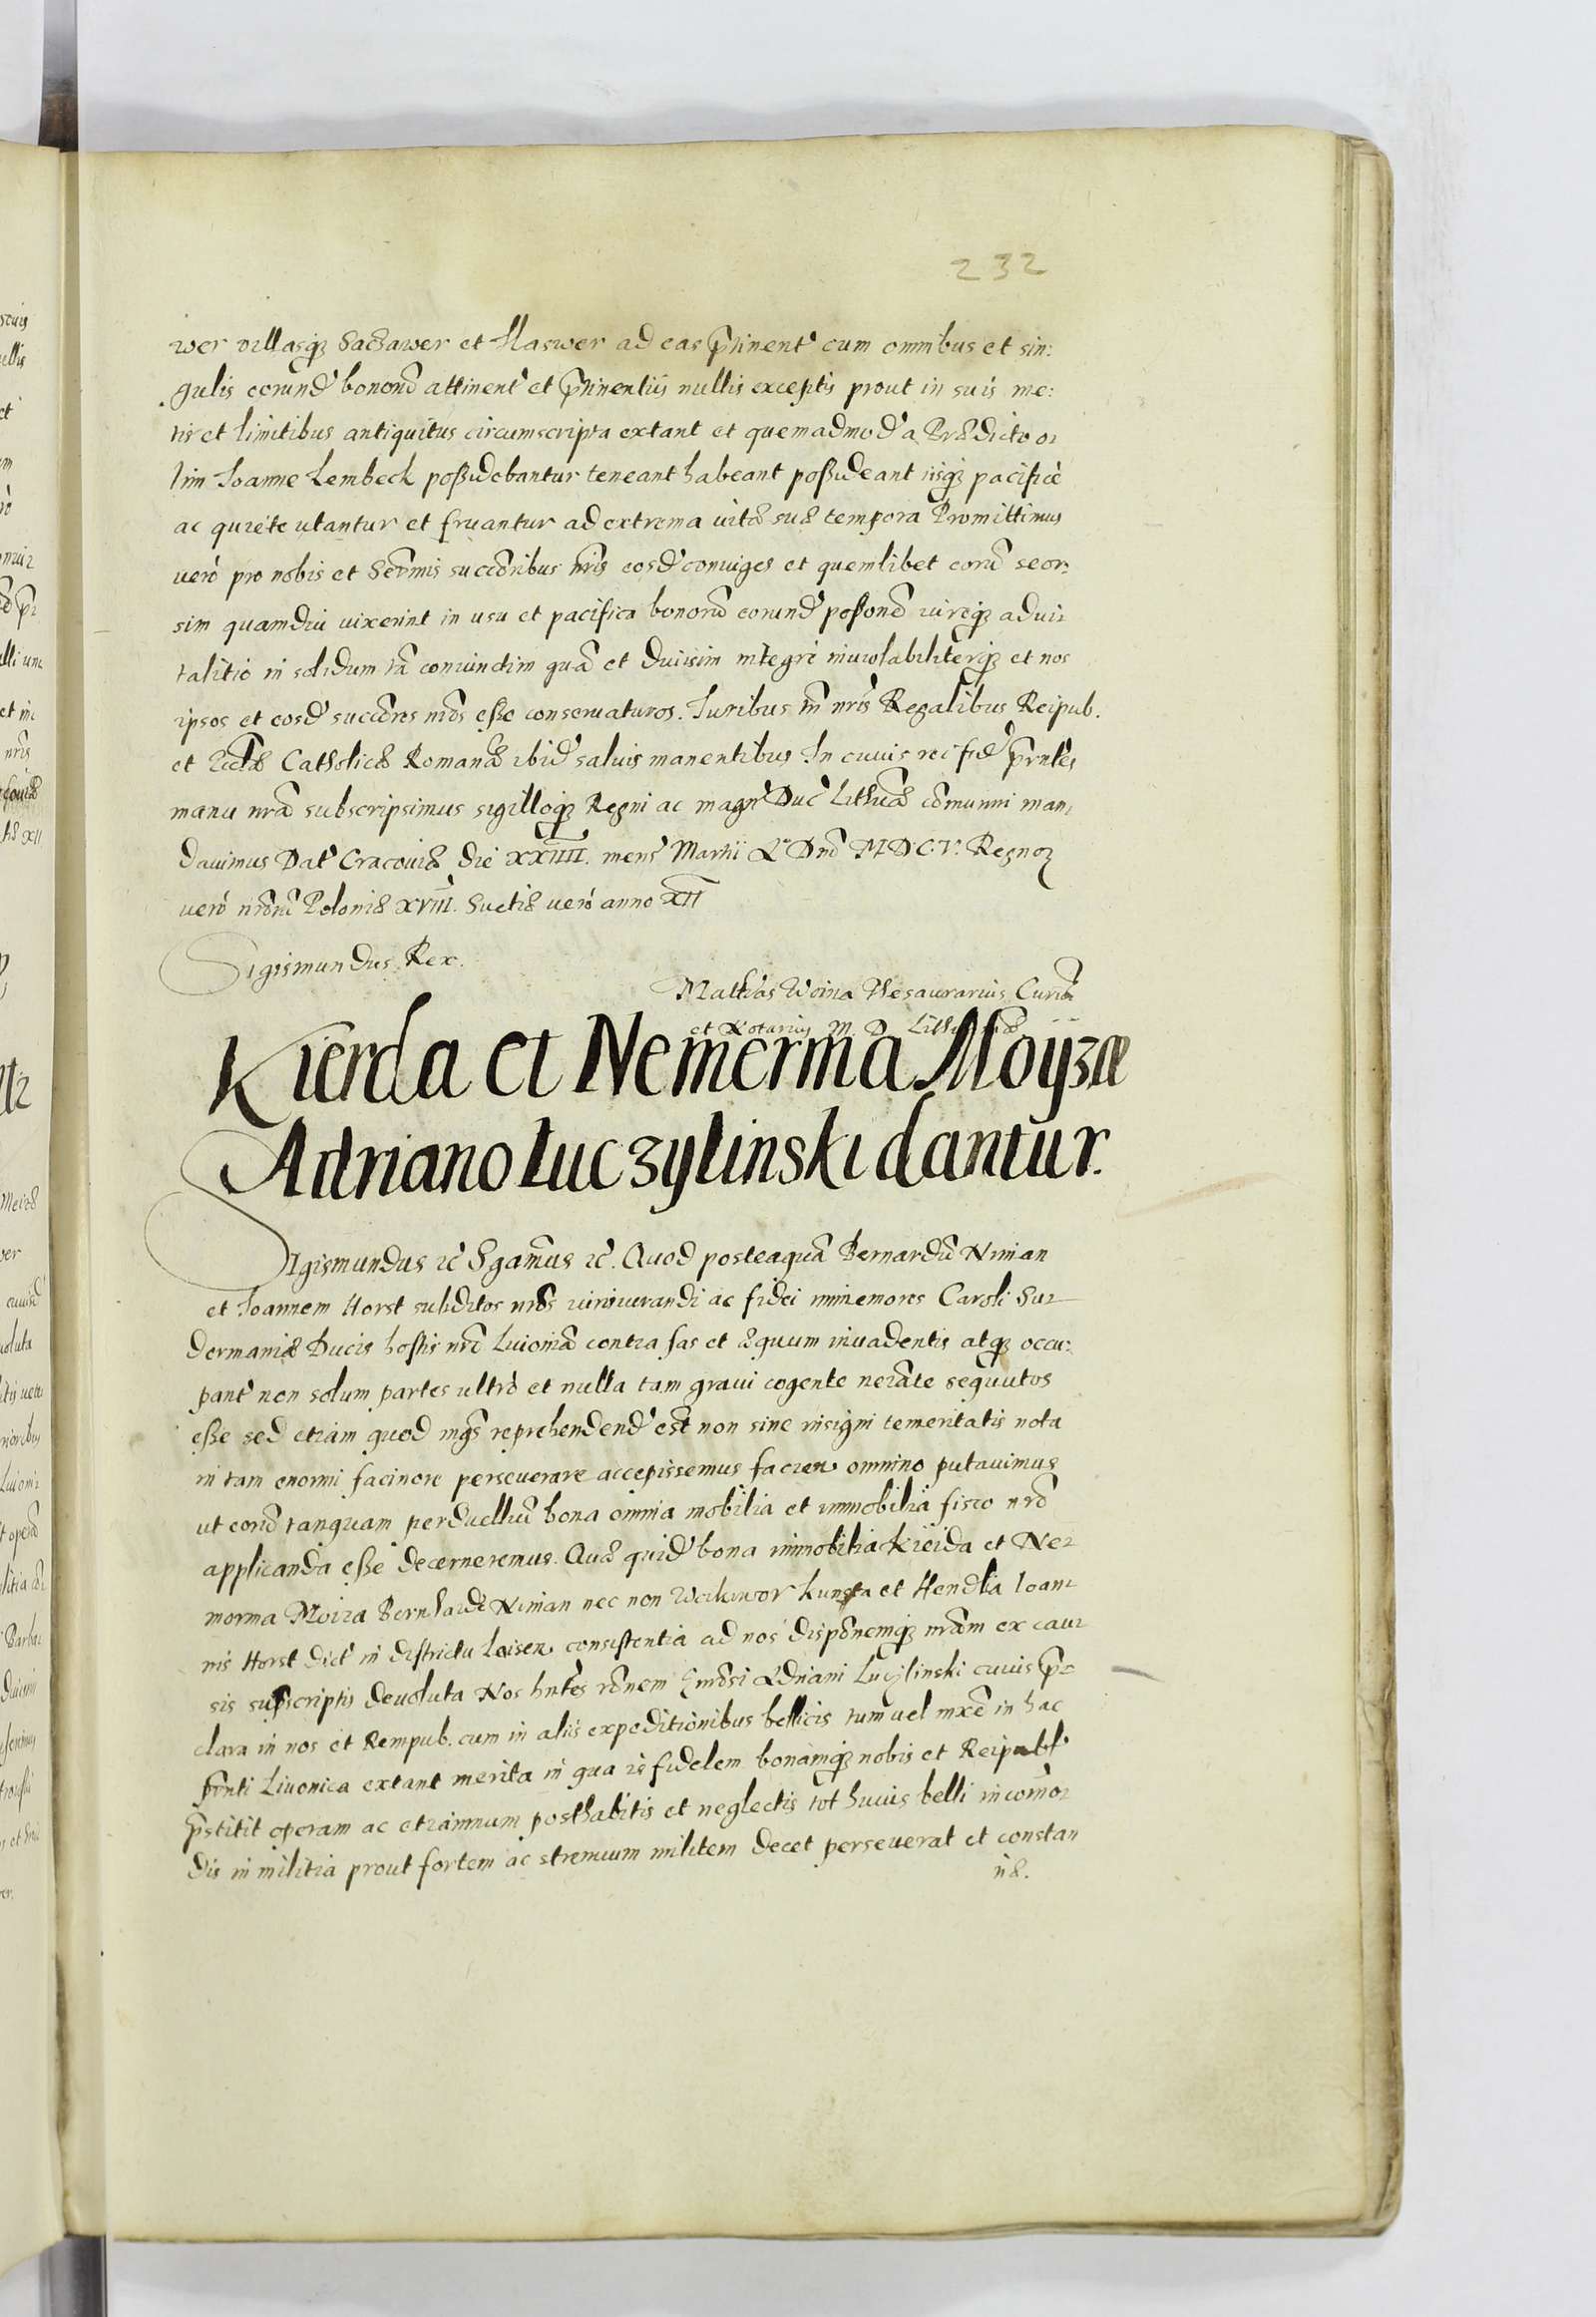 232
wer villasq3 Sachawer et Haswer ad eas ptinent cum omnibus et sin:
gulis eorund bonorũ attinent et ptinentiis nullis exceptis prout in suis me:
tis et limitibus antiquitus circumscripta extant et quemadmod a Prædicto o-
lim Joanne Lembeck possidebantur teneant habeant possideant iisq3 pacificè
ac quiete utantur et fruantur ad extrema vitæ suæ tempora Promittimus
verò pro nobis et Sermis succõribus nris eosd coniuges et quemlibet eorũ seor-
sim quamdiu vixerint in usu et pacifica bonorũ eorund possone iureq3 advi-
talitio in solidum tã coniunctim quã et divisim integrè inviolabiliterq3 et nos
ipsos et eosd succõres nrõs esse conservaturos. Juribus tñ nris Regalibus Reipub.
et Ecclæ Catholicæ Romanæ ibid salvis manentibus In cuius rei fid prntes
manu nrã subscripsimus sigilloq3 Regni ac magn Duc Lithuæ cõmuniri man-
davimus Dat Cracoviæ die XXIIII. mens Martii A Dnĩ M.D.C.V. Regnor
verò nrõrũ Poloniæ XVIII. Suetiæ verò anno XII
Sigismundus Rex.
Mathias Woina Thesaurarius Curiæ
et Notarius M. D. Lith
Kierda et Nemerma Moyzæ
Adriano Luczylinski dantur.
Sigismundus etc Sgamus etc. Quod posteaquã Bernardũ Niman
et Joannem Horst subditos nrõs iurisiurandi ac fidei immemores Caroli Su-
dermaniæ Ducis hostis nrĩ Livoniã contra fas et æquum invadentis atq3 occu:
pant non solum partes ultrò et nulla tam gravi cogente necãte sequutos
esse sed etiam quod mgs reprehendend est non sine insigni temeritatis nota
in tam enormi facinore perseverare accepissemus facien omnino putavimus
ut eorũ tanquam perduelliũ bona omnia mobilia et immobilia fisco nrõ
applicanda esse decerneremus. Quæ quid bona immobilia Kieida et Ne-
morma Moiza Bernhardi Niman nec non Weckwor Kunsta et Hendla Joan-
nis Horst dict in districtu Laisen consistentia ad nos dispõnemq3 nrãm ex cau-
sis suprscriptis devoluta Nos hntes rõnem Gnrõsi Adriani Lucylinski cuius p-
clara in nos et Rempub. cum in aliis expeditionibus bellicis tum vel mxẽ in hac
prnti Livonica extant merita in qua is fidelem bonamq3 nobis et Reipubl
pstitit operam ac etiamnum posthabitis et neglectis tot huius belli incomo-
dis in militia prout fortem ac strenuum militem decet perseverat et constan
tiæ.